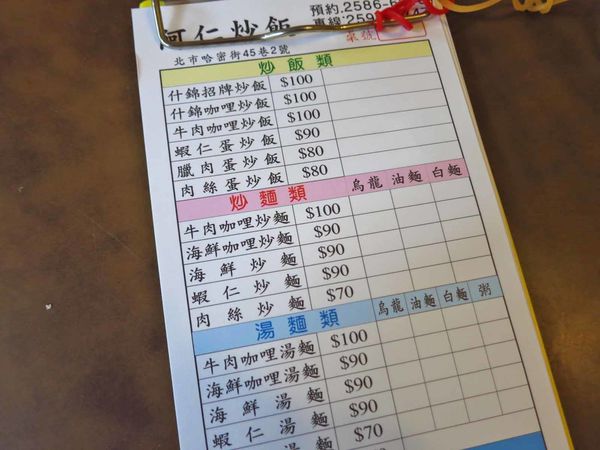 阿仁炒飯
預約.2586-6
專線.259
北市哈密街45巷2號
桌號
炒飯類
什錦招牌炒飯 $100
什錦咖哩炒飯 $100
牛肉咖哩炒飯 $100
蝦仁蛋炒飯 $90
臘肉蛋炒飯 $80
肉絲蛋炒飯 $80
炒麵類 烏龍 油麵 白麵
牛肉咖哩炒麵 $100
海鮮咖哩炒麵 $90
海鮮炒麵 $90
蝦仁炒麵 $90
肉絲炒麵 $70
湯麵類 烏龍 油麵 白麵 粥
牛肉咖哩湯麵 $100
海鮮咖哩湯麵 $90
海鮮湯麵 $90
蝦仁湯麵 $90
$70